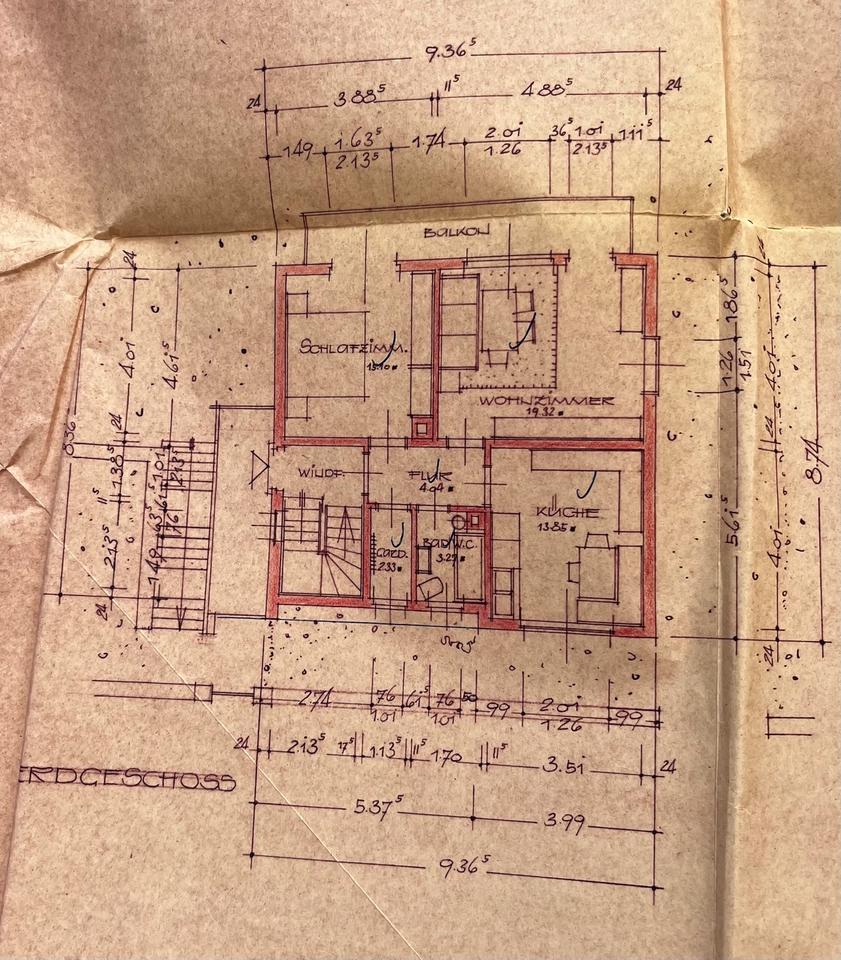 9.36⁵
24 3.88⁵ 11⁵ 4.88⁵ 24
1.49 1.63⁵ 1.74 2.01 36⁵ 1.01 1.11⁵
2.13⁵ 1.26 2.13⁵
BALKON
24
4.01
4.61⁵
24
1.38⁵
11⁵
2.13⁵
24
1.01
2.13⁵
76
1.49
SCHLAFZIMM.
15.10
WOHNZIMMER
19.32
WINDF.
FLUR
4.04
KÜCHE
13.85
GARD.
2.33
BAD W.C.
3.29
1.86⁵
1.26
1.51
5.61⁵
24
4.01
24
4.01
24
8.74
2.74 76 61⁵ 76 50 99 2.01 99
1.01 1.01 1.26
24 2.13⁵ 17⁵ 1.13⁵ 11⁵ 1.70 11⁵ 3.51 24
ERDGESCHOSS
5.37⁵ 3.99
9.36⁵